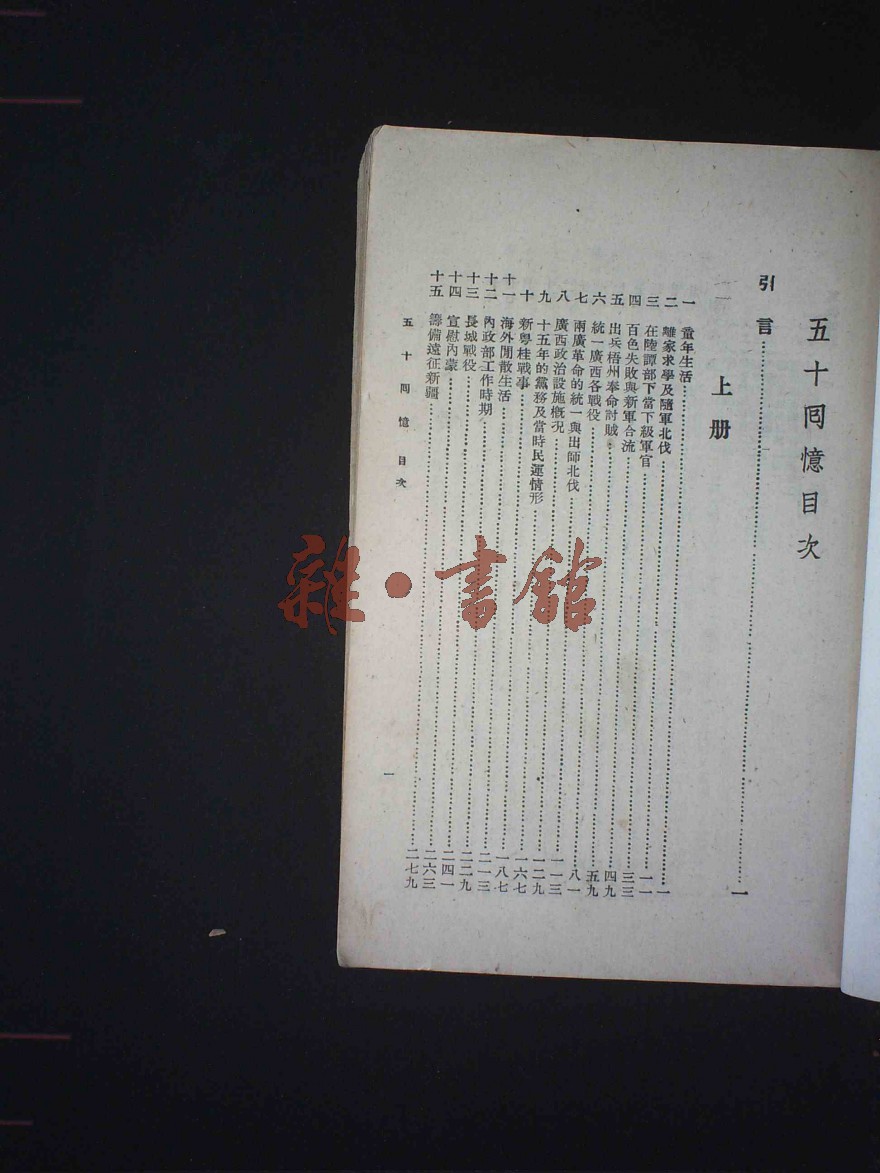 五十囘憶目次
引言……一
上册
一 童年生活……一
二 離家求學及隨軍北伐……一一
三 在陸譚部下當下級軍官……三三
四 百色失敗與新軍合流……四九
五 出兵梧州奉命討賊……五九
六 統一廣西各戰役……八一
七 兩廣革命的統一與出師北伐……一一三
八 廣西政治設施概況……一二九
九 十五年的黨務及當時民運情形……一六七
十 新粵桂戰事……一八七
十一 海外閒散生活……二一三
十二 內政部工作時期……二二九
十三 長城戰役……二四一
十四 宣慰內蒙……二六三
十五 籌備遠征新疆……二七九
五十囘憶 目次
一
雜·書館